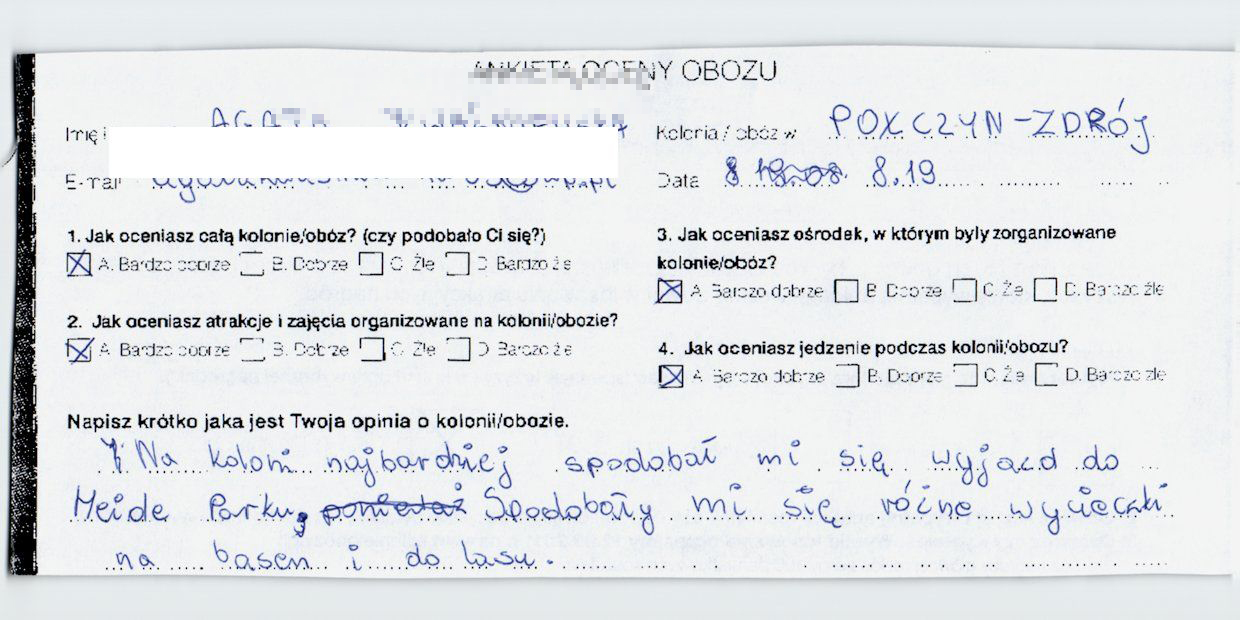 ANKIETA OCENY OBOZU
Imię i
Kolonia / obóz w POŁCZYN-ZDRÓJ
E-mail
Data 8.19
1. Jak oceniasz całą kolonie/obóz? (czy podobało Ci się?)
A. Bardzo dobrze B. Dobrze C. Źle D. Bardzo źle
2. Jak oceniasz atrakcje i zajęcia organizowane na kolonii/obozie?
A. Bardzo dobrze B. Dobrze C. Źle D. Bardzo źle
3. Jak oceniasz ośrodek, w którym były zorganizowane
kolonie/obóz?
A. Bardzo dobrze B. Dobrze C. Źle D. Bardzo źle
4. Jak oceniasz jedzenie podczas kolonii/obozu?
A. Bardzo dobrze B. Dobrze C. Źle D. Bardzo źle
Napisz krótko jaka jest Twoja opinia o kolonii/obozie.
Na koloni najbardziej spodobał mi się wyjazd do
Heide Parku, Spodobały mi się różne wycieczki
na basen i do lasu.